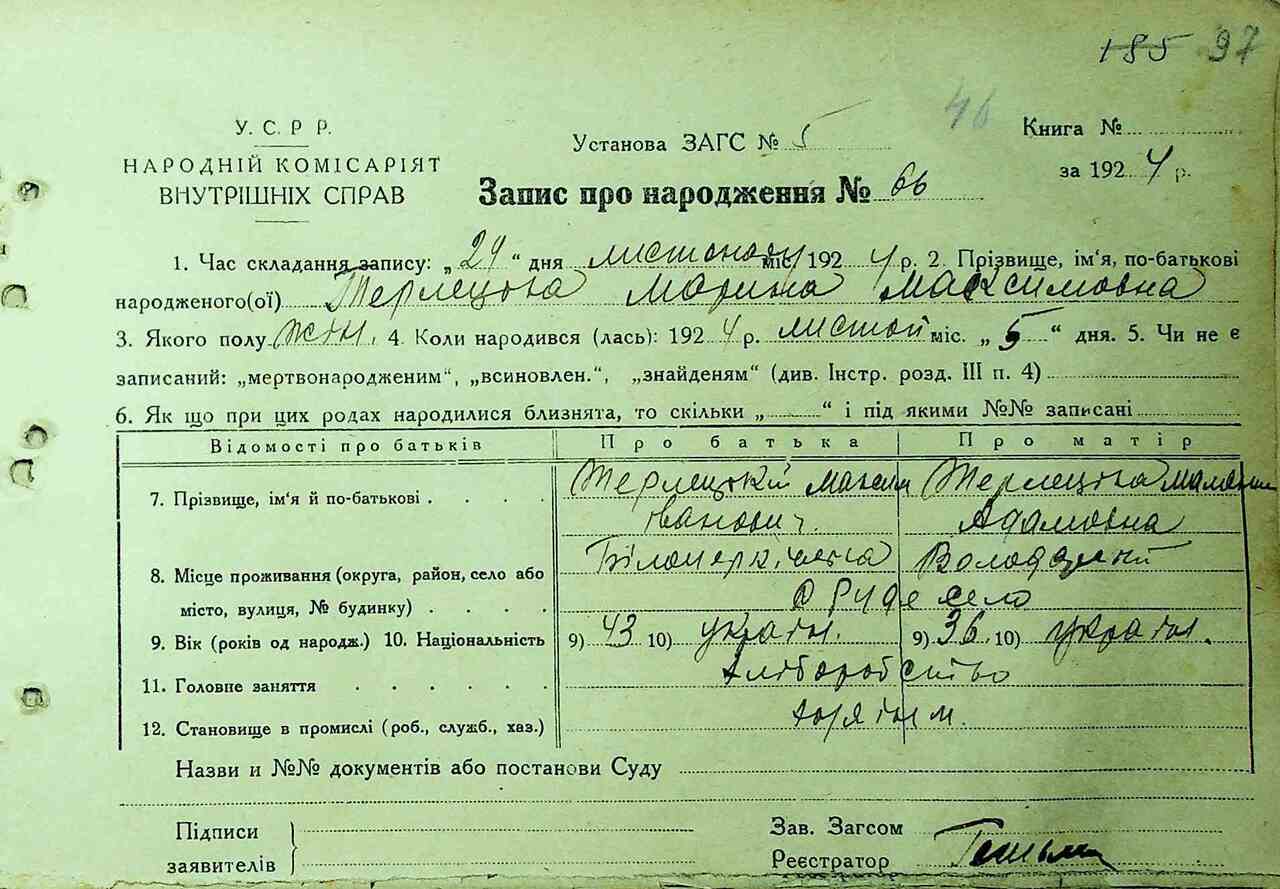 185 97
46
У. С. Р Р.
НАРОДНІЙ КОМІСАРІЯТ
ВНУТРІШНІХ СПРАВ
Установа ЗАГС № 5
Книга №
за 1924 р.
Запис про народження № 66
1. Час складання запису: „24“ дня листопаду міс. 1924 р. 2. Прізвище, ім‘я, по-батькові
народженого(ої) Терлецька Марина Максимовна
3. Якого полу жін. 4. Коли народився (лась): 1924 р. листоп міс. „5“ дня. 5. Чи не є
записаний: „мертвонародженим“, „всиновлен.“, „знайденям“ (див. Інстр. розд. III п. 4)
6. Як що при цих родах народилися близнята, то скільки „ “ і під якими №№ записані
Відомості про батьків Про батька Про матір
7. Прізвище, ім‘я й по-батькові . . . . Терлецький Максим Терлецька
Іванович. Адамовна
8. Місце проживання (округа, район, село або Білоцерківська Володарський
місто, вулиця, № будинку) . . . . Руде село
9. Вік (років од народж.) 10. Національність 9) 43 10) україн. 9) 36 10) україн.
11. Головне заняття . . . . . . хліборобство
12. Становище в промислі (роб., служб., хаз.)
Назви и №№ документів або постанови Суду
Підписи
заявителів
Зав. Загсом
Реєстратор